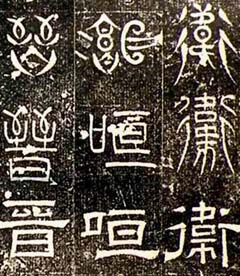 衛衛衛
咺咺咺
晉晉晉